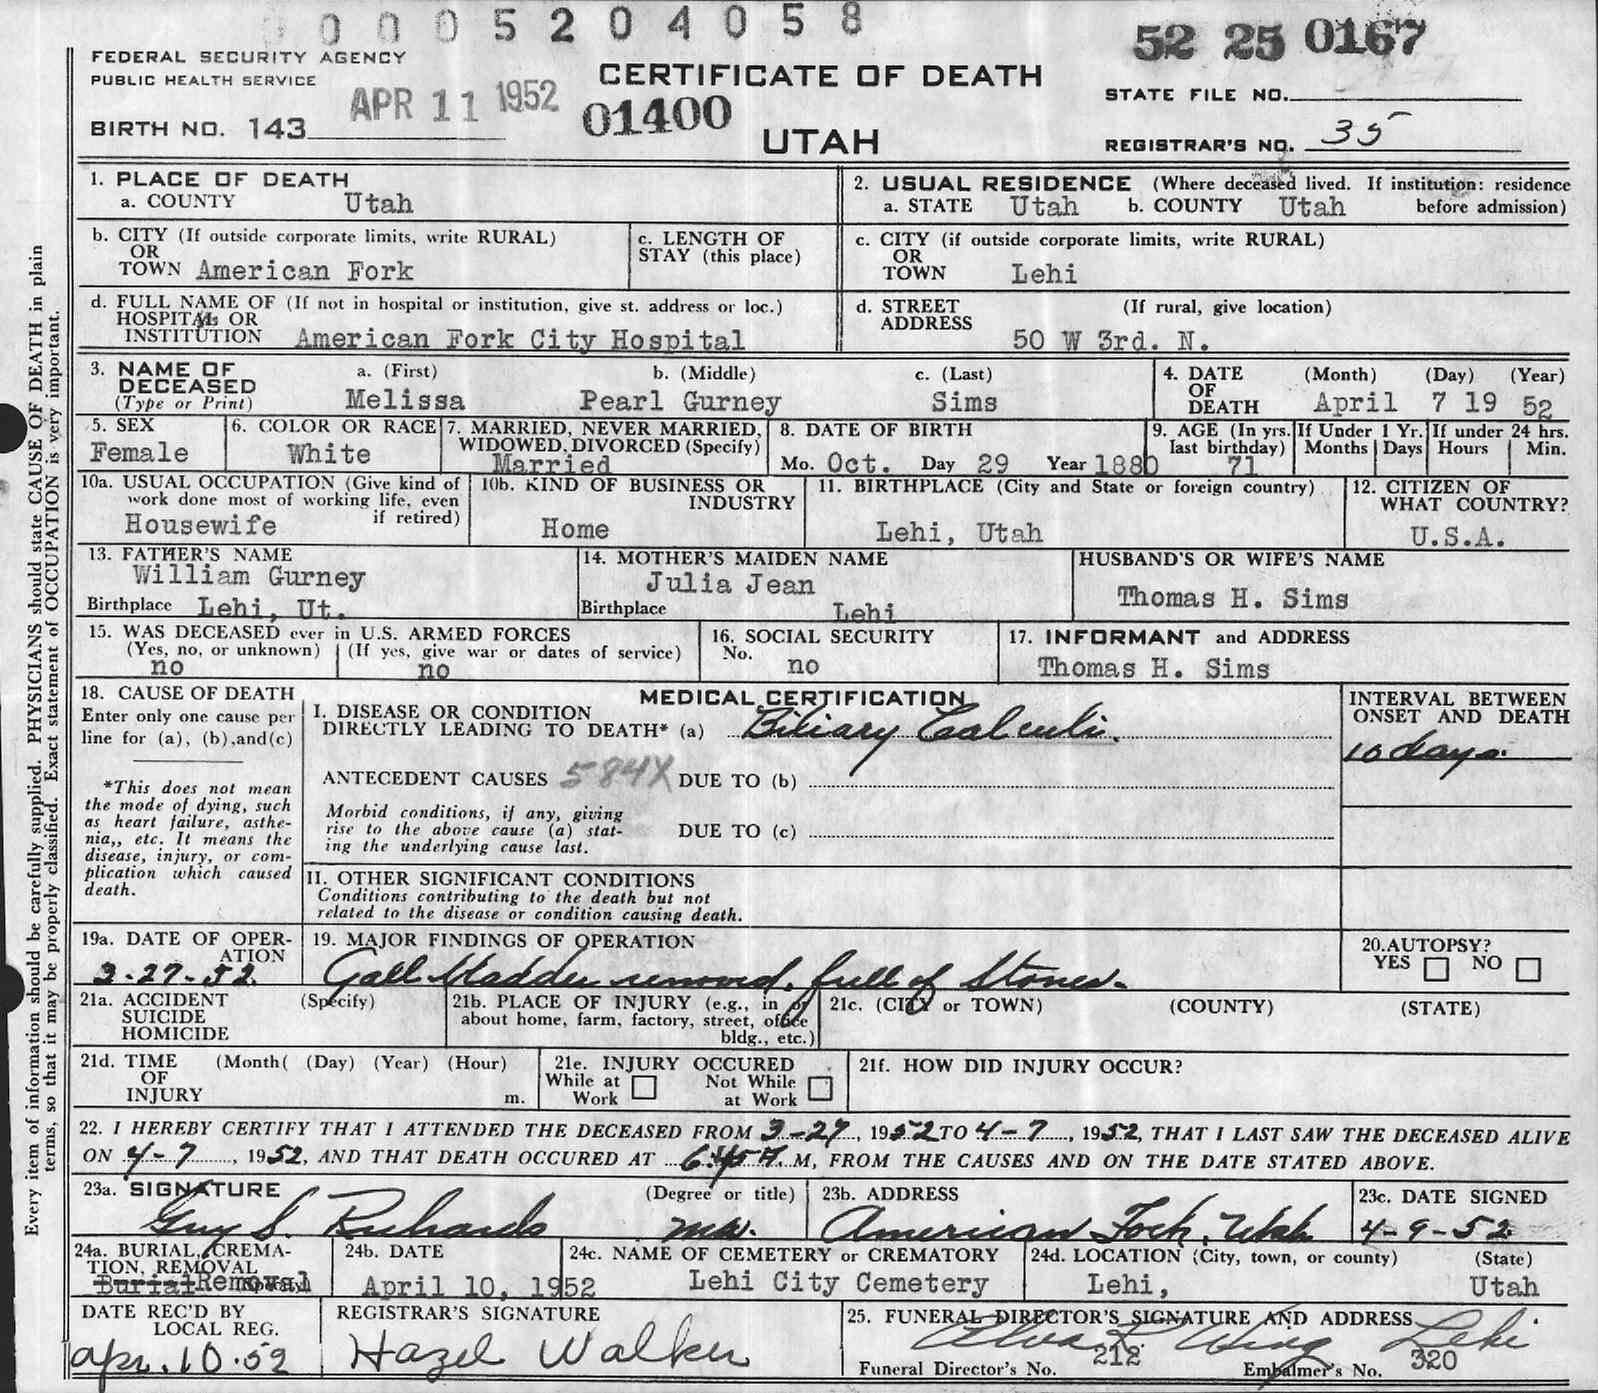 0 0 0 5 2 0 4 0 5 8
52 25 0167
FEDERAL SECURITY AGENCY
PUBLIC HEALTH SERVICE
CERTIFICATE OF DEATH
STATE FILE NO.
APR 11 1952
01400
BIRTH NO. 143
UTAH
REGISTRAR'S NO. 35
Every item of information should be carefully supplied. PHYSICIANS should state CAUSE OF DEATH in plain
terms, so that it may be properly classified. Exact statement of OCCUPATION is very important.
1. PLACE OF DEATH
a. COUNTY Utah
2. USUAL RESIDENCE (Where deceased lived. If institution: residence
a. STATE Utah b. COUNTY Utah before admission)
b. CITY (If outside corporate limits, write RURAL)
OR
TOWN American Fork
c. LENGTH OF
STAY (this place)
c. CITY (if outside corporate limits, write RURAL)
OR
TOWN Lehi
d. FULL NAME OF (If not in hospital or institution, give st. address or loc.)
HOSPITAL OR
INSTITUTION American Fork City Hospital
d. STREET (If rural, give location)
ADDRESS
50 W 3rd. N.
3. NAME OF
DECEASED
(Type or Print)
a. (First) b. (Middle) c. (Last)
Melissa Pearl Gurney Sims
4. DATE (Month) (Day) (Year)
OF
DEATH April 7 19 52
5. SEX
Female
6. COLOR OR RACE
White
7. MARRIED, NEVER MARRIED,
WIDOWED, DIVORCED (Specify)
Married
8. DATE OF BIRTH
Mo. Oct. Day 29 Year 1880
9. AGE (In yrs.
last birthday)
71
If Under 1 Yr.
Months Days
If under 24 hrs.
Hours Min.
10a. USUAL OCCUPATION (Give kind of
work done most of working life, even
if retired)
Housewife
10b. KIND OF BUSINESS OR
INDUSTRY
Home
11. BIRTHPLACE (City and State or foreign country)
Lehi, Utah
12. CITIZEN OF
WHAT COUNTRY?
U.S.A.
13. FATHER'S NAME
William Gurney
Birthplace Lehi, Ut.
14. MOTHER'S MAIDEN NAME
Julia Jean
Birthplace Lehi
HUSBAND'S OR WIFE'S NAME
Thomas H. Sims
15. WAS DECEASED ever in U.S. ARMED FORCES
(Yes, no, or unknown) (If yes, give war or dates of service)
no no
16. SOCIAL SECURITY
No.
no
17. INFORMANT and ADDRESS
Thomas H. Sims
18. CAUSE OF DEATH
Enter only one cause per
line for (a), (b),and(c)
*This does not mean
the mode of dying, such
as heart failure, asthe-
nia,, etc. It means the
disease, injury, or com-
plication which caused
death.
MEDICAL CERTIFICATION
I. DISEASE OR CONDITION
DIRECTLY LEADING TO DEATH* (a) Biliary Calculi.
ANTECEDENT CAUSES 584X DUE TO (b)
Morbid conditions, if any, giving
rise to the above cause (a) stat-
ing the underlying cause last.
DUE TO (c)
II. OTHER SIGNIFICANT CONDITIONS
Conditions contributing to the death but not
related to the disease or condition causing death.
INTERVAL BETWEEN
ONSET AND DEATH
10 days.
19a. DATE OF OPER-
ATION
3-27-52.
19. MAJOR FINDINGS OF OPERATION
Gall bladder removed, full of Stones.
20.AUTOPSY?
YES NO
21a. ACCIDENT (Specify)
SUICIDE
HOMICIDE
21b. PLACE OF INJURY (e.g., in or
about home, farm, factory, street, office
bldg., etc.)
21c. (CITY or TOWN) (COUNTY) (STATE)
21d. TIME (Month( (Day) (Year) (Hour)
OF
INJURY m.
21e. INJURY OCCURED
While at Not While
Work at Work
21f. HOW DID INJURY OCCUR?
22. I HEREBY CERTIFY THAT I ATTENDED THE DECEASED FROM 3-27, 1952 TO 4-7, 1952, THAT I LAST SAW THE DECEASED ALIVE
ON 4-7, 1952, AND THAT DEATH OCCURED AT 6:45 A. M, FROM THE CAUSES AND ON THE DATE STATED ABOVE.
23a. SIGNATURE (Degree or title)
Guy S. Richards M.D.
23b. ADDRESS
American Fork, Utah
23c. DATE SIGNED
4-9-52
24a. BURIAL, CREMA-
TION, REMOVAL
Burial Removal
24b. DATE
April 10, 1952
24c. NAME OF CEMETERY or CREMATORY
Lehi City Cemetery
24d. LOCATION (City, town, or county) (State)
Lehi, Utah
DATE REC'D BY
LOCAL REG.
Apr. 10.52
REGISTRAR'S SIGNATURE
Hazel Walker
25. FUNERAL DIRECTOR'S SIGNATURE AND ADDRESS
Wing Lehi
Funeral Director's No. 212 Embalmer's No. 320